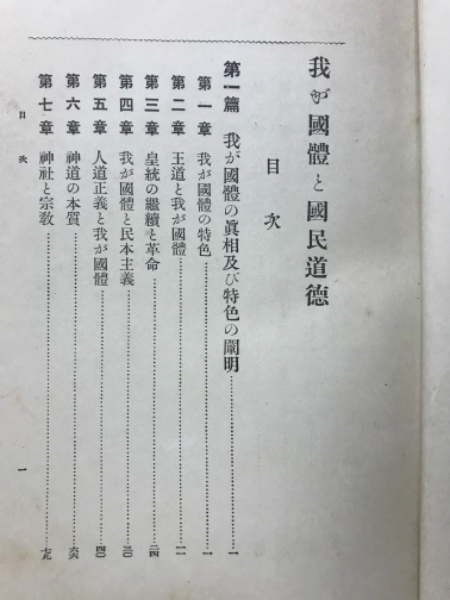 我が國體と國民道德
目次
第一篇 我が國體の眞相及び特色の闡明……一
第一章 我が國體の特色……一
第二章 王道と我が國體……一二
第三章 皇統の繼續と革命……二四
第四章 我が國體と民本主義……三〇
第五章 人道正義と我が國體……四〇
第六章 神道の本質……六六
第七章 神社と宗敎……七九
目次
一